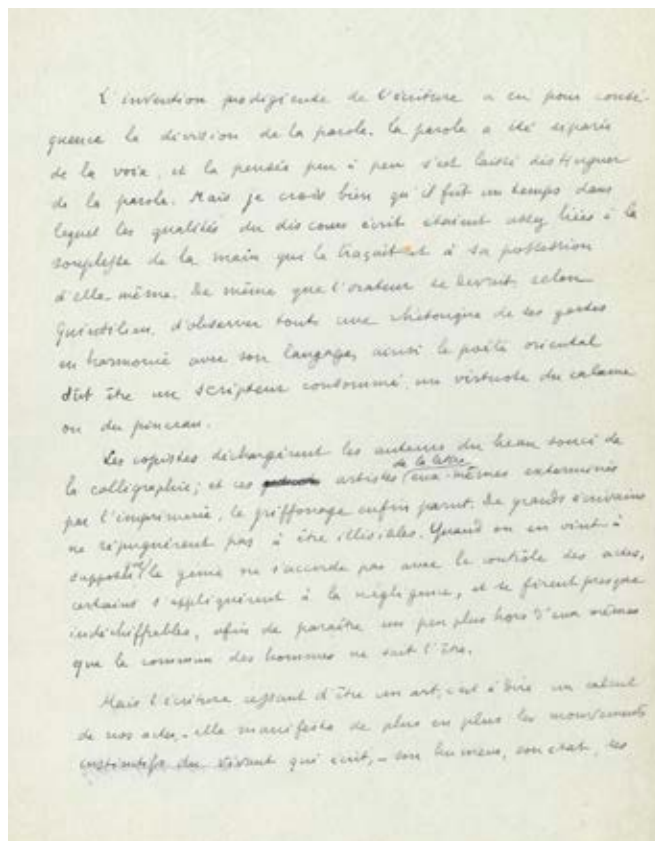 L'invention prodigieuse de l'écriture a eu pour consé-
quence la division de la parole. La parole a été séparée
de la voix, et la pensée peu à peu s'est laissé distinguer
de la parole. Mais je crois bien qu'il fût un temps dans
lequel les qualités du discours écrit étaient assez liées à la
souplesse de la main qui le traçait et à sa possession
d'elle-même. De même que l'orateur se devait, selon
Quintilien, d'observer toute une rhétorique de ses gestes
en harmonie avec son langage, ainsi le poète oriental
dût être un scripteur consommé, un virtuose du calame
ou du pinceau.
Les copistes déchargèrent les auteurs du beau souci de
la calligraphie; et ces artistes de la lettre eux-mêmes exterminés
par l'imprimerie, le griffonage enfin parut. De grands écrivains
ne répugnèrent pas à être illisibles. Quand on en vint à
supposer que le génie ne s'accorde pas avec le contrôle des actes,
certains s'appliquèrent à la négligence, et se firent presque
indéchiffrables, afin de paraître un peu plus hors d'eux-mêmes
que le commun des hommes ne sait l'être.
Mais l'écriture cessant d'être un art, c'est à dire un calcul
de nos actes, - elle manifesta de plus en plus les mouvements
instinctifs du vivant qui écrit, - son humeur, son état, ses